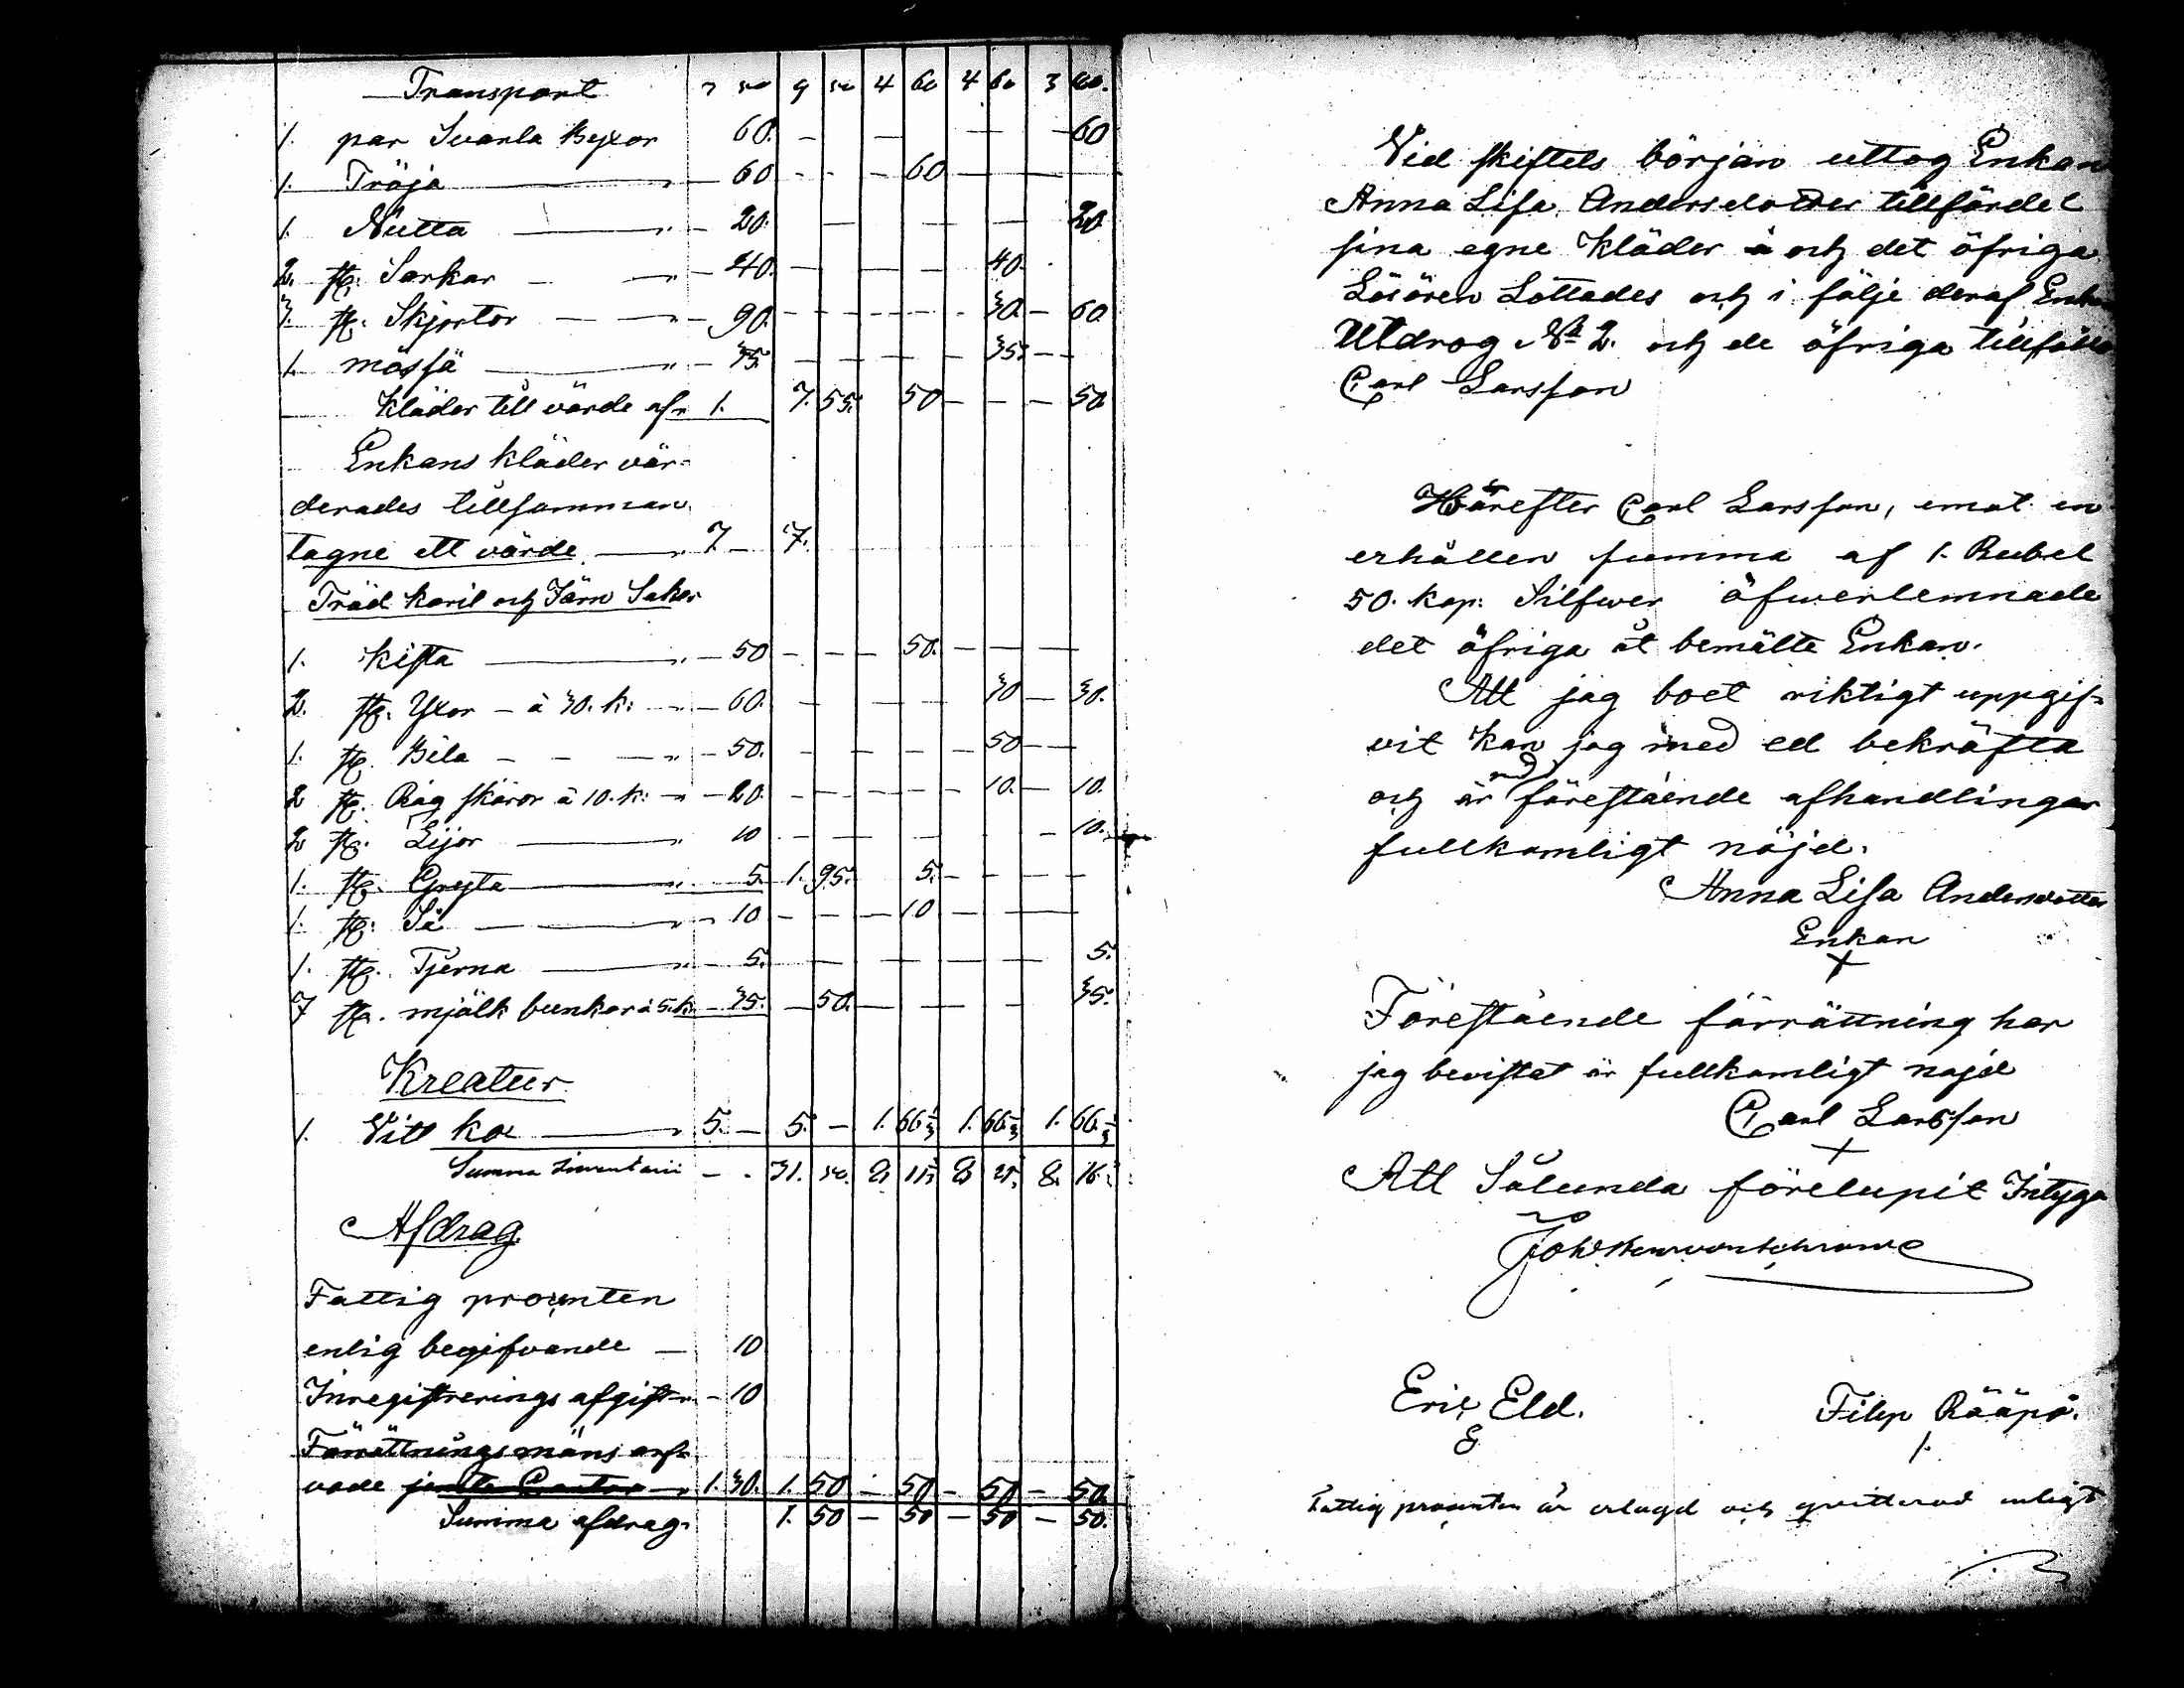 Transport 7 50 9 50 4 60 4 60 3 60.
1. par Svarta Byxor 60. — — — — 60
1. Tröja — " — 60 - - — 60 — — —
1. Nutta — " — 20. — — — — 20
2. st: Sarkar — " — 40. — — — 40.
3. st. Skjortor — — " — 90. - - - - 30. — 60
1. mössa — " — 35. - - - - 35. — —
Kläder till värde af " 1. 7. 55. 50 — — — 50.
Enkans kläder vär-
derades tillsamman
tagne ett värde — " 7. — 7.
Träd karil och Järn Saker
1. Kista — " — 50 — — — 50. — — —
2. st. Yxor — à 30. k: — " — 60. — — — — 30 — 30.
1. st. Bila — — — " — 50. — — — — 50 — —
2 st. Råg skäror à 10. k: — " — 20. — — — — 10. — 10.
2 st. Lijor — " 10 — — — — 10.
1. st. Gryta — " 5. 1. 95. 5. — — — —
1. st: Så — " — 10 — — — 10 — — —
1. st. Tjerna — " — 5. — — — — — 5.
7 st. mjölk bunkar à 5. k. — 35. — 50. — — — — 35.
Kreatur
1. Vitt ko — " 5. — 5. — 1. 66 1/3 1. 66 1/3 1. 66 1/3
Summa Inventarii — . 31. 50. 8 11 8 21 8. 16
Afdrag.
Fattig procenten
enlig begifvande — 10
Inregistrerings afgift — 10
Förrättningsmäns arf-
vode 1. 30. 1. 50 — 50 — 50 — 50.
Summa afdrag. 1. 50 — 50 — 50 — 50.
Vid skiftets början uttog Enkan
Anna Lisa Andersdotter tillfördel
sina egne Kläder å och det öfriga
Lösören Lottades och i följe deraf Enkan
Utdrog No 2. och de öfriga tillföllo
Carl Larsson
Härefter Carl Larsson, emot en
erhållen summa af 1. Rubel
50. kop: Silfwer öfwerlemnade
det öfriga åt bemälte Enkan.
Att jag boet riktigt uppgif-
vit Kan jag med ed bekräfta
och är med förestående afhandlingar
fullkomligt nöjd.
Anna Lisa Andersdotter
Enkan
X
Förestående förrättning har
jag bevistat är fullkomligt nöjd
Carl Larsson
X
Att Sålunda förelupit Intyga
Eric Eld.
E
Filip Rääpö.
1.
Fattig procenten är erlagd och qvitterad enligt